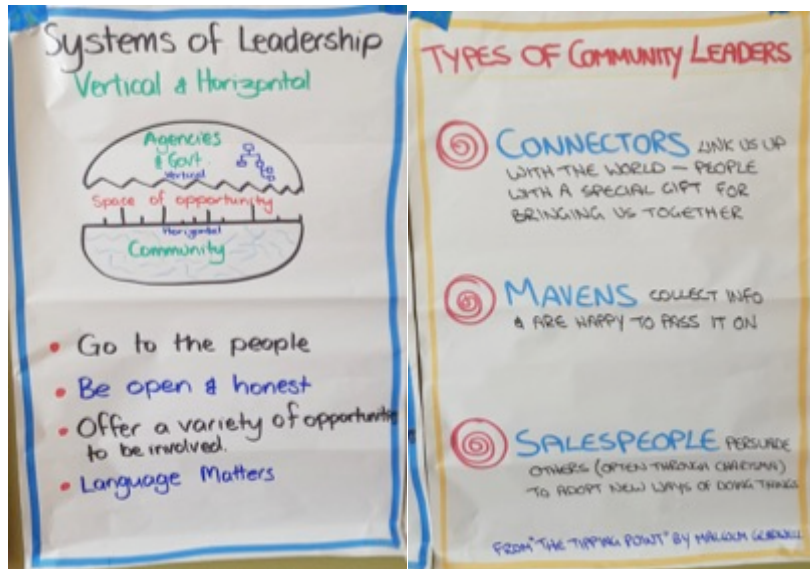 Systems of Leadership
Vertical & Horizontal
Agencies
& Govt.
Vertical
Space of opportunity
Horizontal
Community
• Go to the people
• Be open & honest
• Offer a variety of opportunities
to be involved.
• Language Matters
TYPES OF COMMUNITY LEADERS
CONNECTORS LINK US UP
WITH THE WORLD – PEOPLE
WITH A SPECIAL GIFT FOR
BRINGING US TOGETHER
MAVENS COLLECT INFO
& ARE HAPPY TO PASS IT ON
SALESPEOPLE PERSUADE
OTHERS (OFTEN THROUGH CHARISMA)
TO ADOPT NEW WAYS OF DOING THINGS
FROM "THE TIPPING POINT" BY MALCOLM GLADWELL